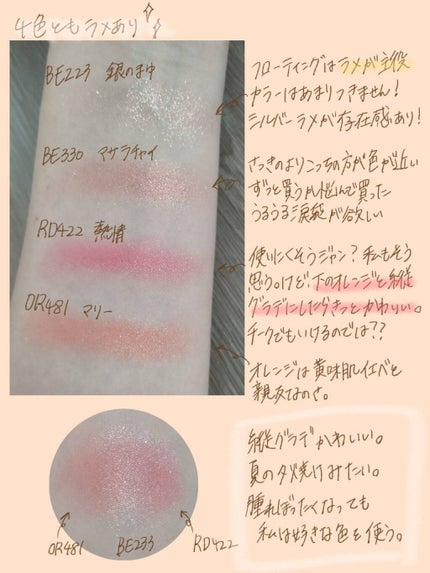 4色ともラメあり
BE223 銀の夜中
フローティングはラメが主役
カラーはあまりつきません!
シルバーラメが存在感あり!
BE330 マサラチャイ
さっきのよりこっちの方が色が近い
ずっと買うか悩んで買った
うるうる涙袋が欲しい
RD422 熱情
使いにくそうジャン?私もそう
思う。けど、下のオレンジと縦
グラデにしたらきっとかわいい。
チークでもいけるのでは??
OR481 マリー
オレンジは黄味肌イエベと
親友なのさ。
縦グラデかわいい。
夏の夕焼けみたい。
腫れぼったくなっても
私は好きな色を使う。
OR481
BE233
RD422